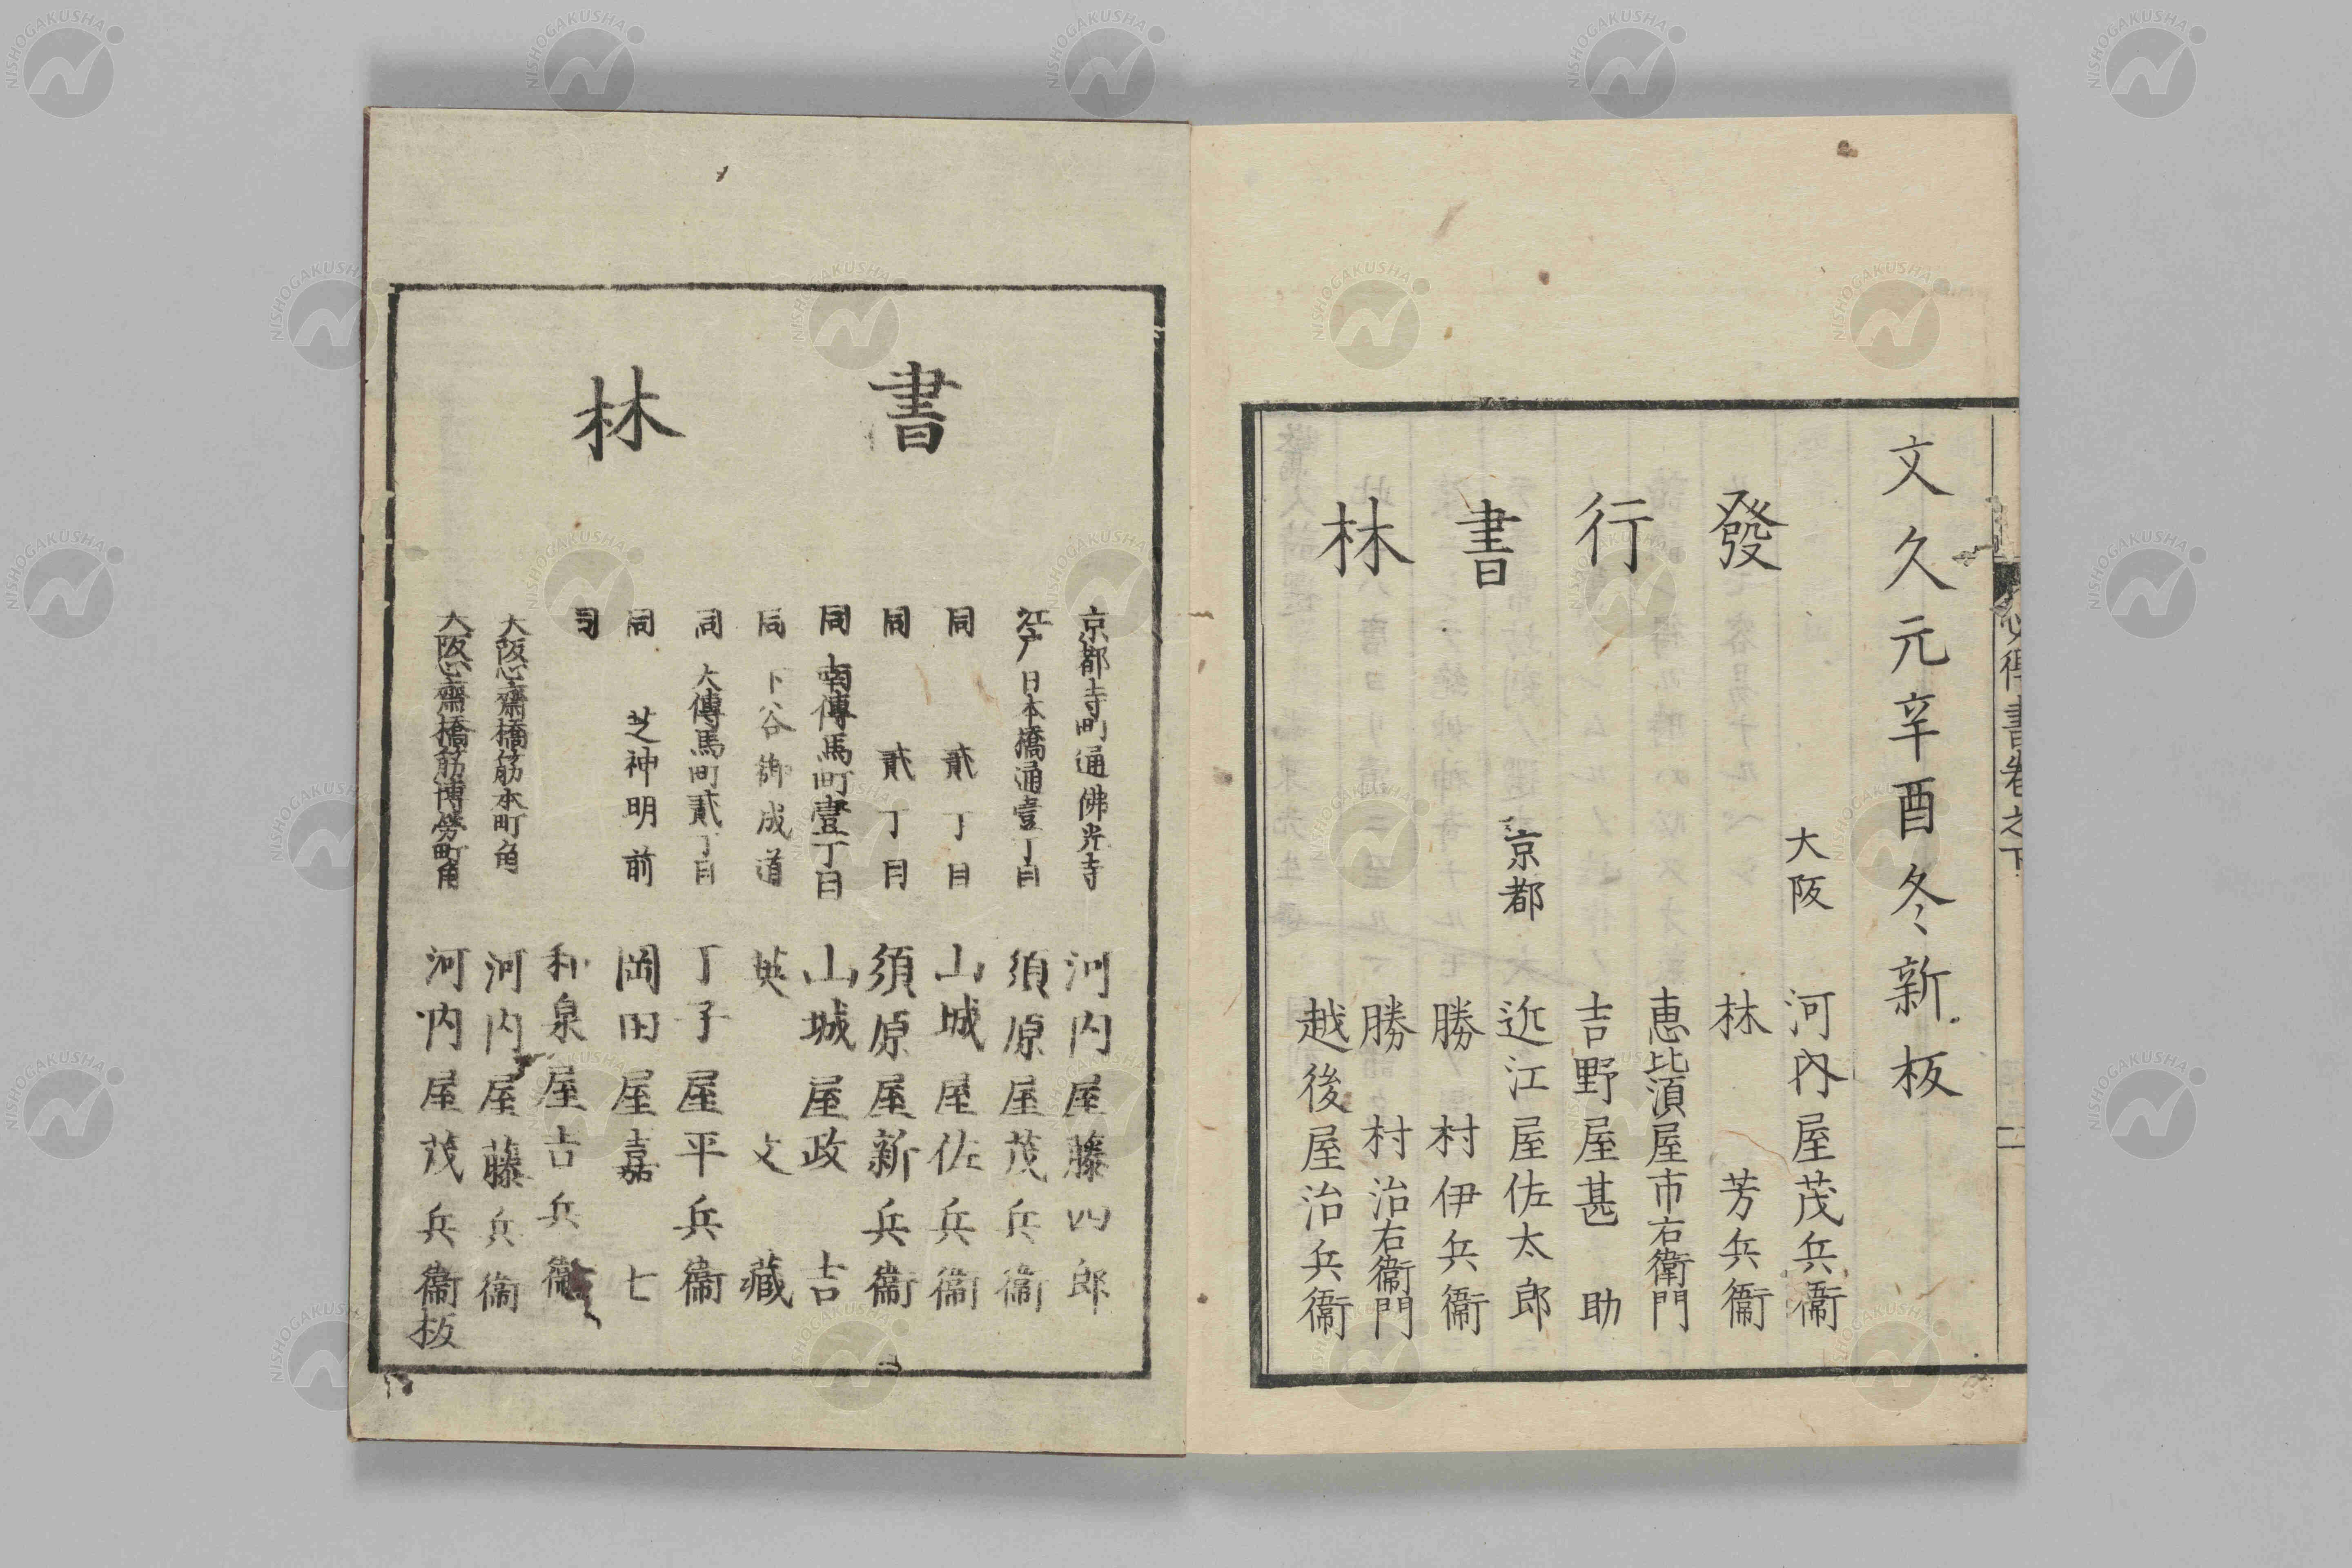 文久元辛酉冬新板
發行書林
大阪 河內屋茂兵衞
林 芳兵衞
恵比須屋市右衛門
吉野屋甚助
京都 近江屋佐太郎
勝村伊兵衞
勝村治右衞門
越後屋治兵衞
書林
京都寺町通佛光寺 河内屋藤四郎
江戸日本橋通壹丁目 須原屋茂兵衞
同 貳丁目 山城屋佐兵衞
同 貳丁目 須原屋新兵衞
同 南傳馬町壹丁目 山城屋政吉
同 下谷御成道 英文藏
同 大傳馬町貳丁目 丁子屋平兵衞
同 芝神明前 岡田屋嘉七
同 和泉屋吉兵衞
大阪心齋橋筋本町角 河内屋藤兵衞
大阪心齋橋筋博勞町角 河内屋茂兵衞板
得書卷之下
NISHOGAKUSHA